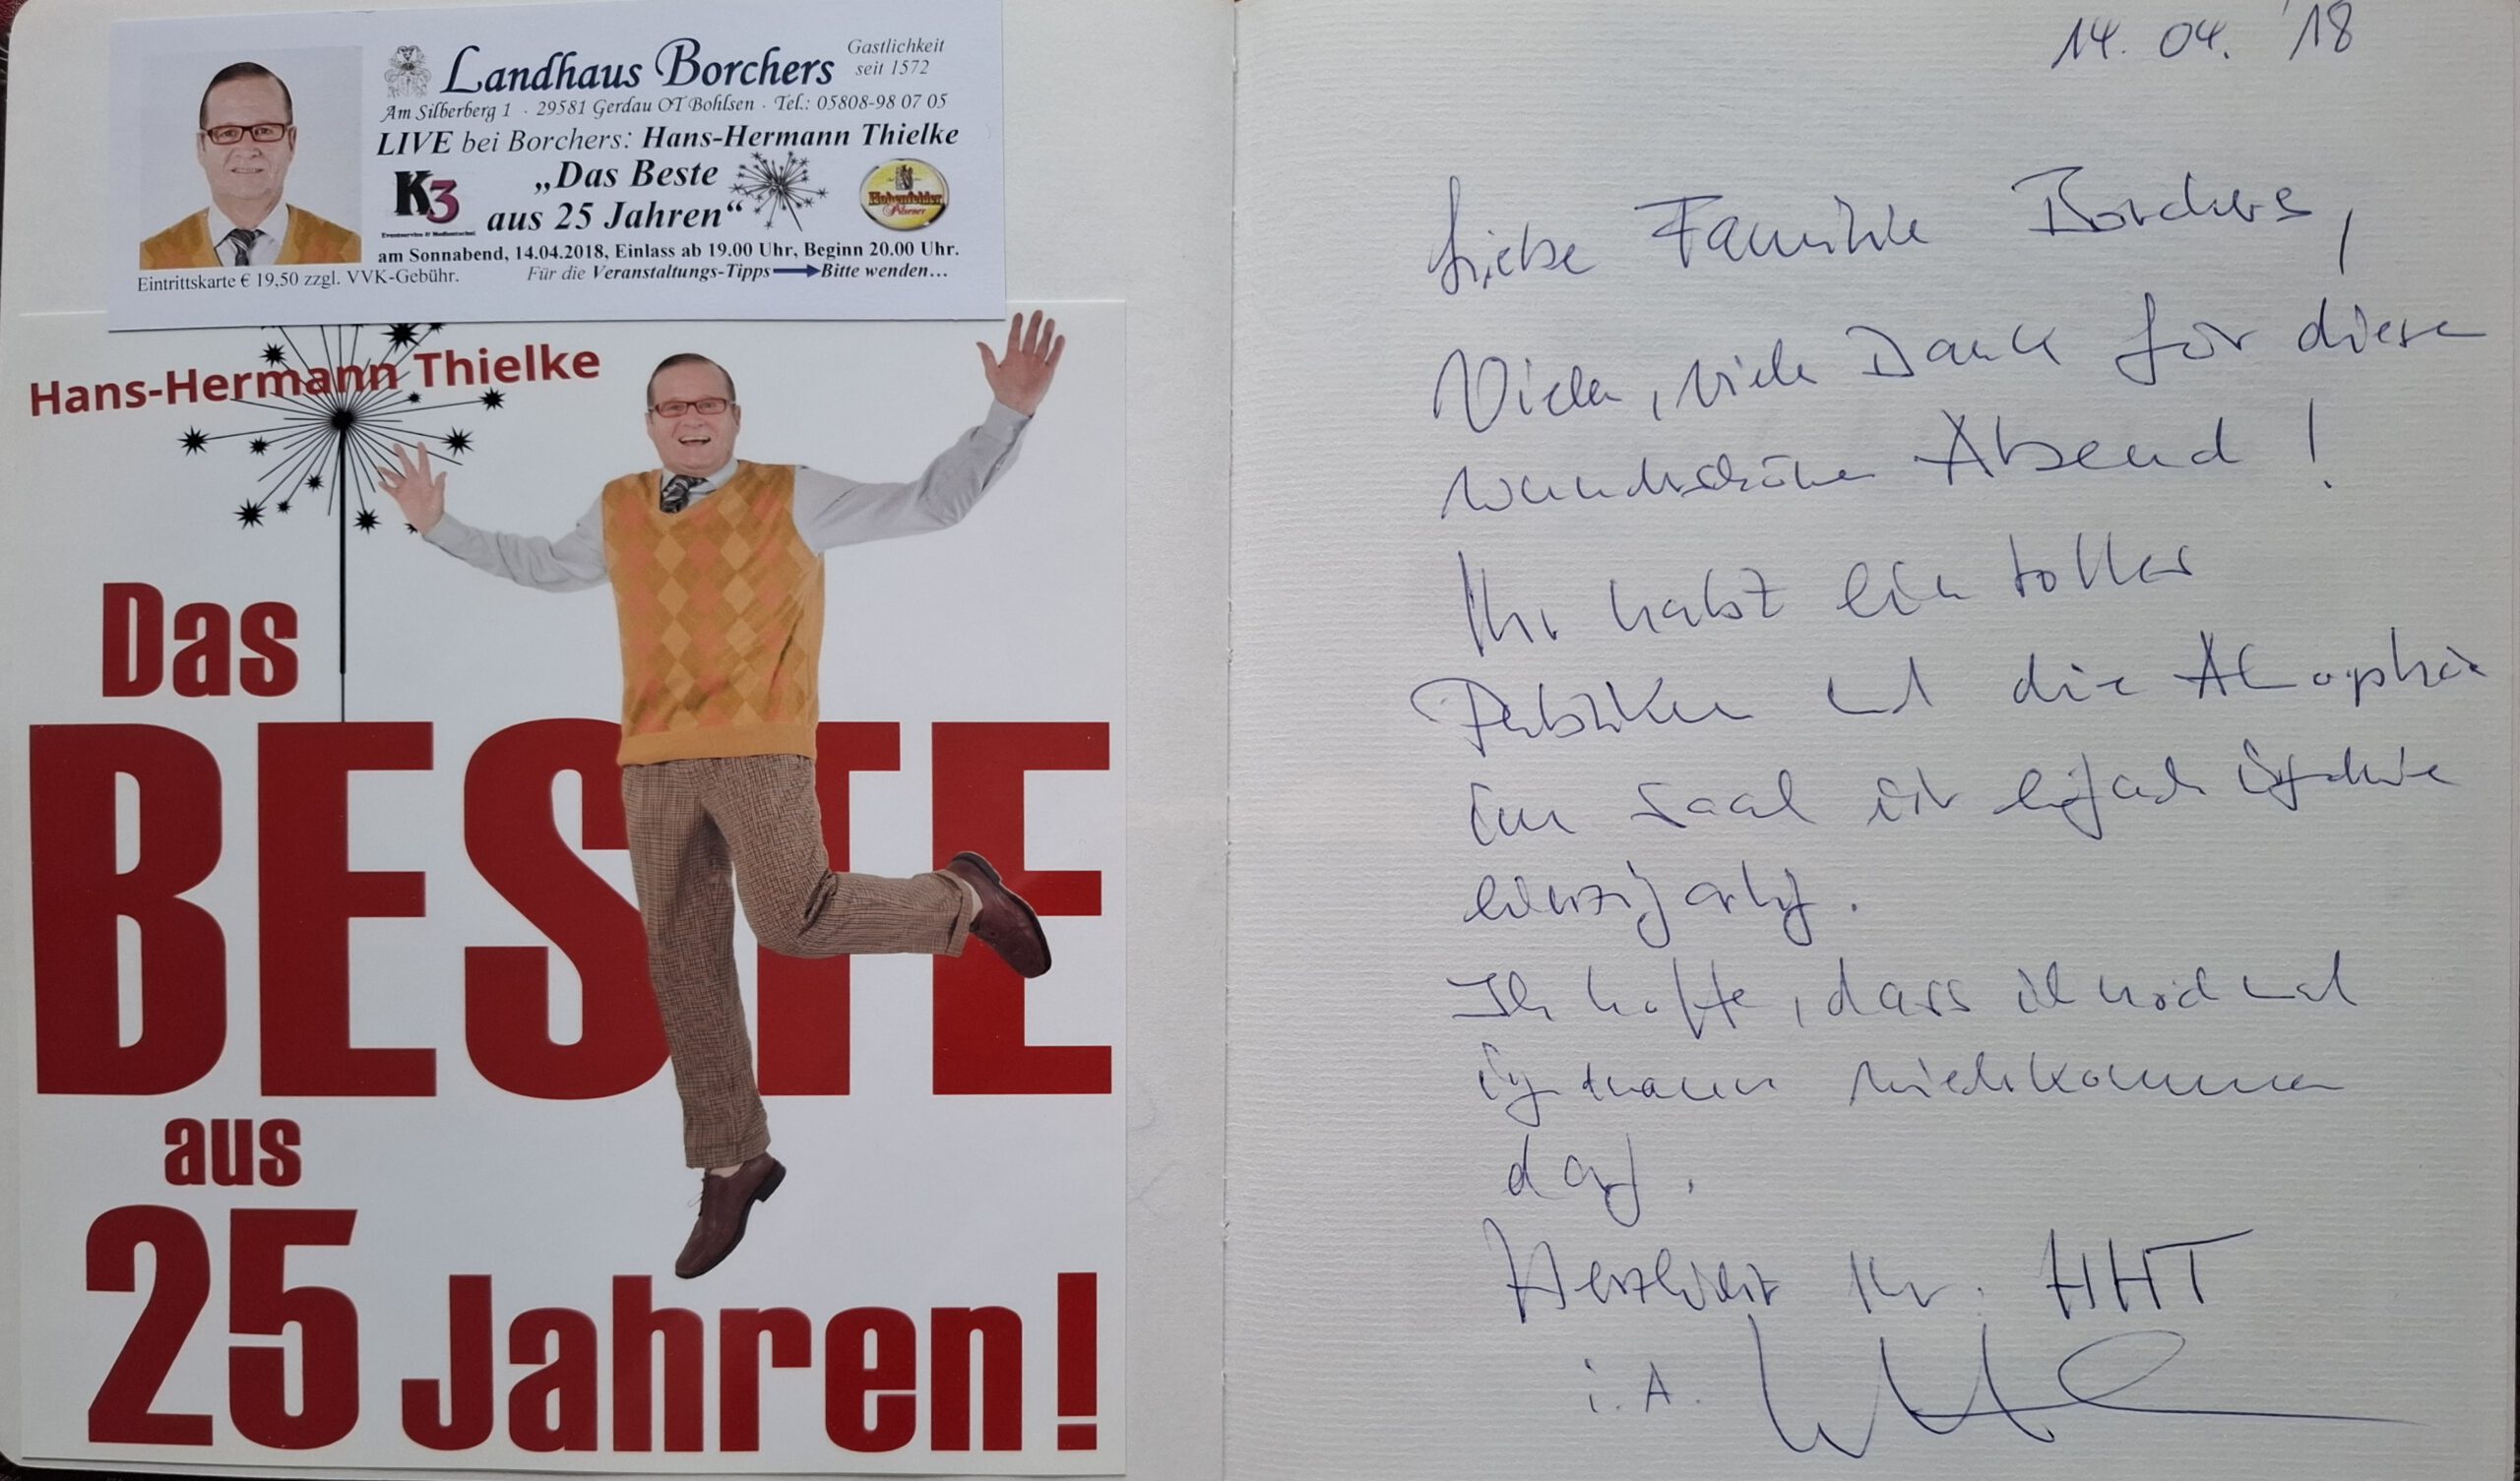 Landhaus Borchers
Gastlichkeit
seit 1572
Am Silberberg 1 · 29581 Gerdau OT Bohlsen · Tel.: 05808-98 07 05
LIVE bei Borchers: Hans-Hermann Thielke
K3
„Das Beste
aus 25 Jahren“
Hohenfelder
Pilsener
am Sonnabend, 14.04.2018, Einlass ab 19.00 Uhr, Beginn 20.00 Uhr.
Eintrittskarte € 19,50 zzgl. VVK-Gebühr.
Für die Veranstaltungs-Tipps Bitte wenden...
Hans-Hermann Thielke
Das
BESTE
aus
25 Jahren!
14. 04. '18
Liebe Familie Borchers,
Vielen, viele Dank für diesen
wunderschönen Abend!
Ihr habt ein tolles
Publikum und die Atmosphäre
im Saal ist einfach irgendwie
einzigartig.
Ich hoffe, dass ich noch mal
irgendwann wiederkommen
darf.
Herzlichst Ihr HHT
i.A.